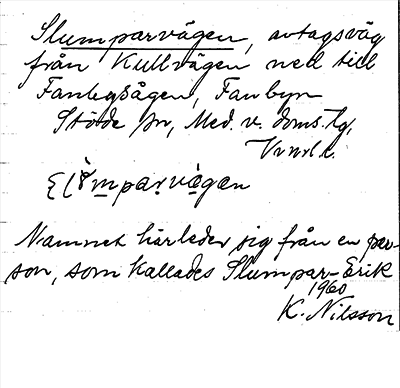 Slumparvägen, avtagsväg
från Kullvägen ned till
Fanbysågen, Fanbyn
Stöde sn, Med. v. doms. tg,
Vnrlt.
Namnet härleder sig från en per-
son, som kallades Slumpar-Erik
1960
K. Nilsson